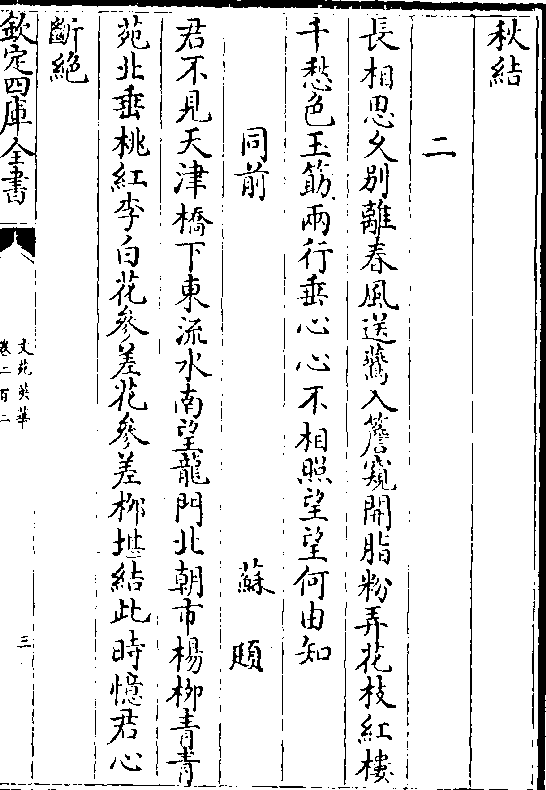 秋結
二
長相思久别離春風送鷰入簷窺開脂粉弄花枝紅樓
千愁色玉筯兩行垂心心不相照望望何由知
同前 蘇頲
君不見天津橋下東流水南望龍門北朝市楊栁青青
苑北垂桃紅李白花參差花參差栁堪結此時憶君心
斷絶
欽定四庫全書
文苑英華
卷二百二
三